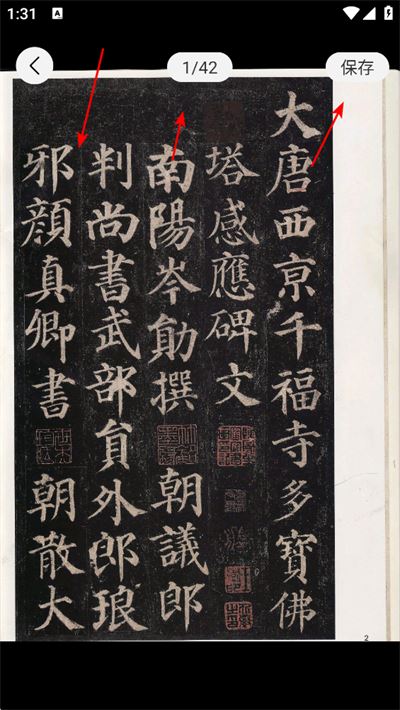 1:31
A
1/42
保存
大唐西京千福寺多寶佛
塔感應碑文
南陽岑勛撰 朝議郎
判尚書武部員外郎琅
邪顏真卿書 朝散大
2